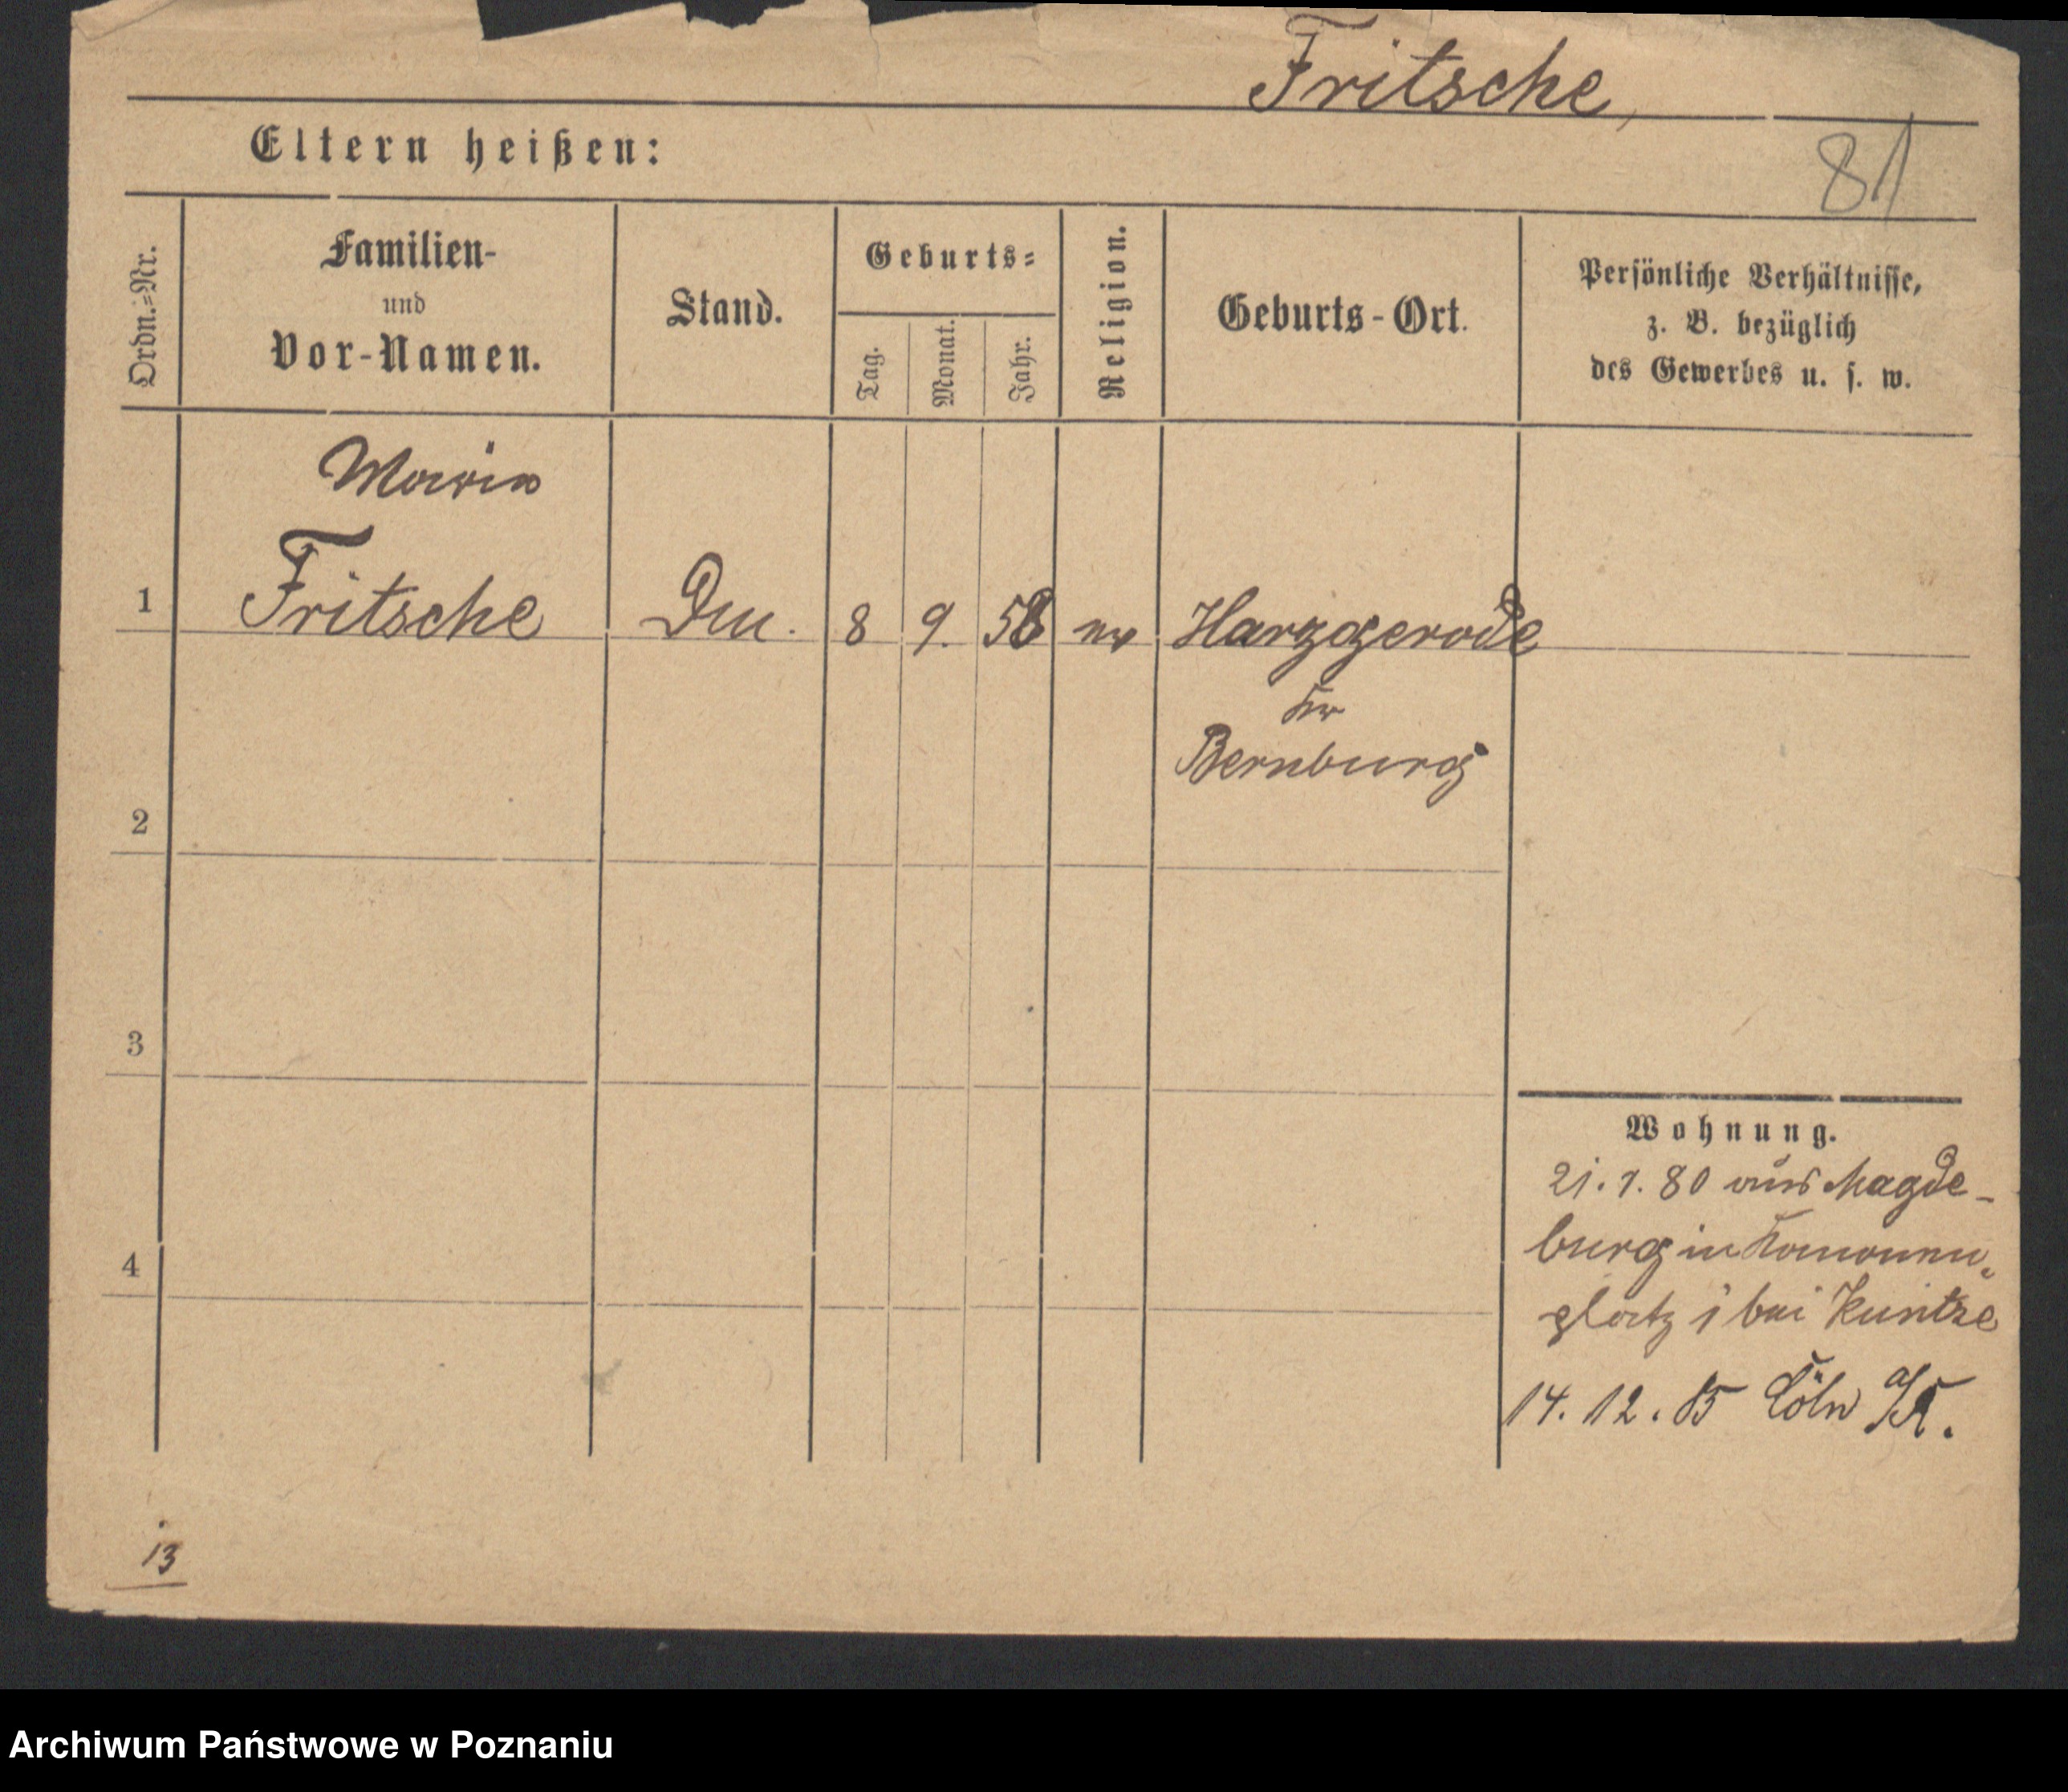 Fritsche,
Eltern heißen:
81
Ordn.=Nr.
Familien-
und
Vor-Namen.
Stand.
Geburts=
Tag.
Monat.
Jahr.
Religion.
Geburts-Ort.
Persönliche Verhältnisse,
z. B. bezüglich
des Gewerbes u. s. w.
Marie
1 Fritsche 8 9. 58 ev Harzgerode
Kr
Bernburg
2
3
4
Wohnung.
21.7.80 aus Magde-
burg in Kanonen-
platz 1 bei Kuntze
14.12.85 Cöln a/R.
13
Archiwum Państwowe w Poznaniu